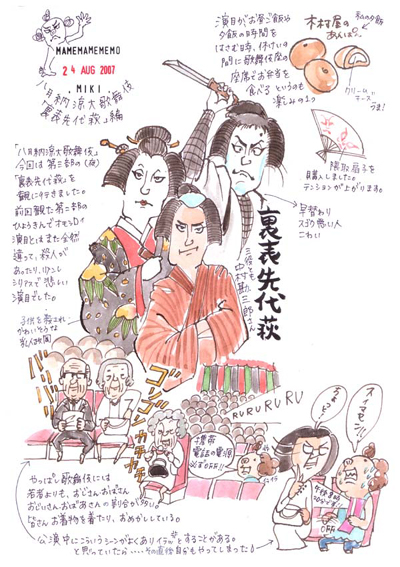 MAMEMAMEMEMO
24 AUG 2007
. MIKI .
八月納涼大歌舞伎
「裏表先代萩」編
「八月納涼大歌舞伎」
今回は第三部の(夜)
「裏表先代萩」を
観に行きました。
前回観た第二部の
演目とはまた全然
違って、殺人が
あったり、少し
シリアスで悲しい
演目でした。
子供を殺され
かわいそうな
演目がお昼ご飯や
夕飯の時間を
はさむ時、休けいの
間に歌舞伎座の
座席でお弁当を
食べるというのも
楽しみのよう
私の夕飯
木村屋の
あんぱん
クリーム
チーズ
うま!
隈取扇子を
購入しました。
テンションが上がります。
早替わり
スゴク悪い人
こわい
裏表先代萩
三役とも
中村勘三郎さん
バリバリ
ゴンゴン
ガチャガチャ
RURURURU
携帯
電話の電源
必ずOFF!!
イライラ
ちょっと!
スーマセン!!
OFF
やっぱし歌舞伎には
若者よりも、おじさんおばさん
おじいさんおばあさんの割合が多い。
皆さんお着物を着たり、おめかししている。
公演中にこういうシーンがよくありイラッとすることがある。
と思っていたら・・・・その直後自分もやってしまった